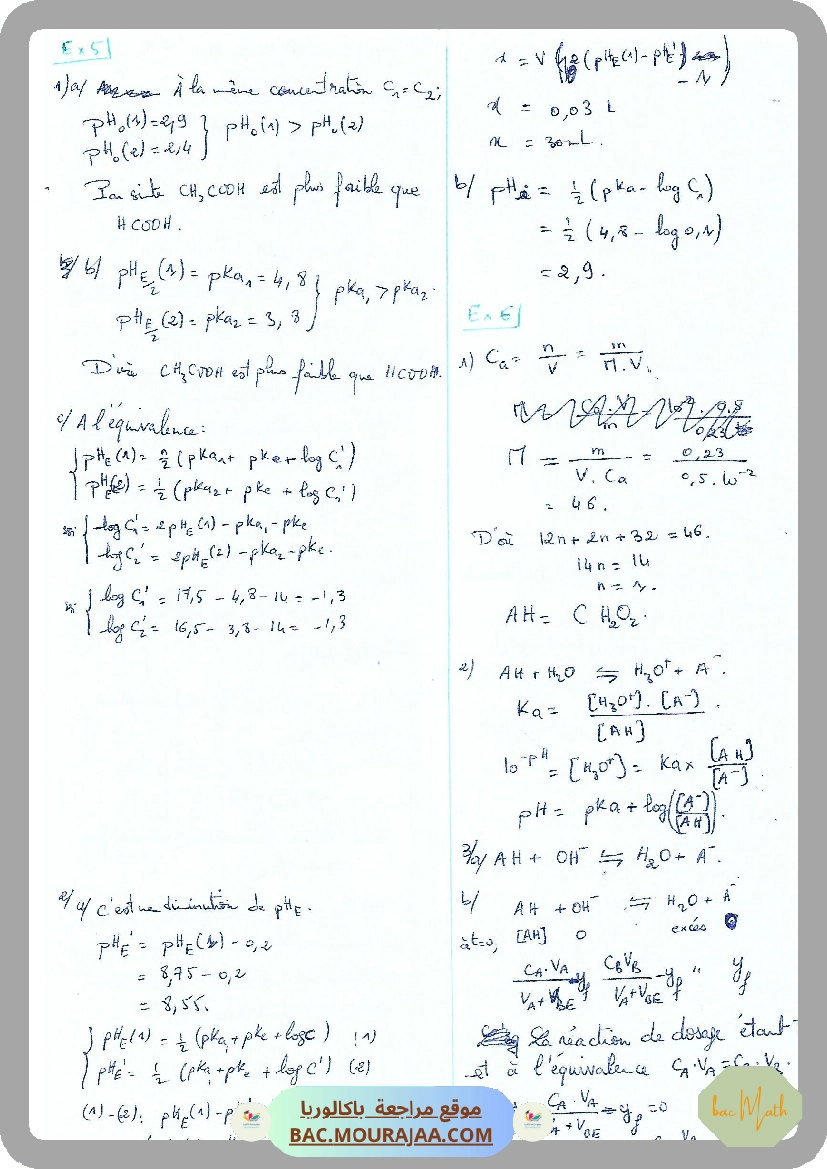 Ex 5
1) a/ À la même concentration C₁ = C₂;
pH₀(1) = 2,9
pH₀(2) = 2,4 } pH₀(1) > pH₀(2)
Par suite CH₃COOH est plus faible que
HCOOH.
b/ pH_E/2(1) = pKa₁ = 4,8
pH_E/2(2) = pKa₂ = 3,8 } pKa₁ > pKa₂.
D'où CH₃COOH est plus faible que HCOOH.
c/ A l'équivalence:
pH_E(1) = ½ (pKa₁ + pKe + log C₁')
pH_E(2) = ½ (pKa₂ + pKe + log C₂')
log C₁' = 2pH_E(1) - pKa₁ - pKe
log C₂' = 2pH_E(2) - pKa₂ - pKe.
log C₁' = 17,5 - 4,8 - 14 = -1,3
log C₂' = 16,5 - 3,8 - 14 = -1,3
2/ a/ C'est une diminution de pH_E.
pH_E' = pH_E(1) - 0,2
= 8,75 - 0,2
= 8,55.
pH_E(1) = ½ (pKa₁ + pKe + log C) (1)
pH_E' = ½ (pKa₁ + pKe + log C') (2)
(1) - (2): pH_E(1) - p
x = V ( 2(pH_E(1) - pH_E') - 1)
x = 0,03 L
x = 30 mL.
b/ pH = ½ (pKa - log C₁)
= ½ (4,8 - log 0,1)
= 2,9.
Ex 6
1) Ca = n/V = m/M.V
M = m/V.Ca = 0,23/0,5.10⁻²
= 46.
D'où 12n + 2n + 32 = 46.
14n = 14
n = 1.
AH = C H₂O₂.
2) AH + H₂O ⇋ H₃O⁺ + A⁻.
Ka = [H₃O⁺].[A⁻]/[AH].
10^-pH = [H₃O⁺] = Ka x [AH]/[A⁻]
pH = pKa + log([A⁻]/[AH]).
3/ a/ AH + OH⁻ ⇋ H₂O + A⁻.
b/ AH + OH⁻ ⇋ H₂O + A⁻
à t=0, [AH] 0 excés
C_A.V_A/V_A+V_BE - y_f C_B V_B/V_A+V_BE - y_f " y_f
La réaction de dosage étant
à l'équivalence C_A.V_A = C_B.V_B.
C_A.V_A/V_A+V_BE - y_f = 0
موقع مراجعة باكالوريا
BAC.MOURAJAA.COM
bac Math